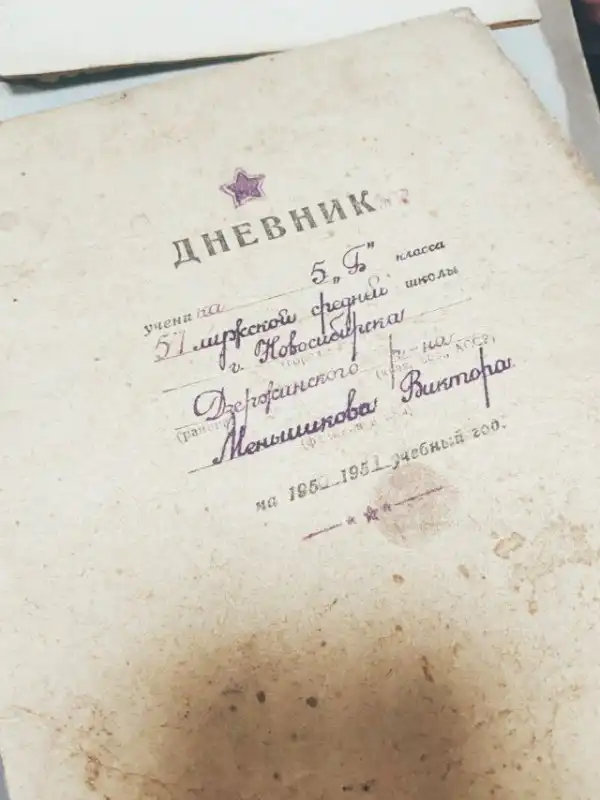 ДНЕВНИК
ученика 5 „Б" класса
57 мужской средней школы
г. Новосибирска
Дзержинского р-на
(район) (край, обл., АССР)
Меньшикова Виктора
на 1950-1951 учебный год.